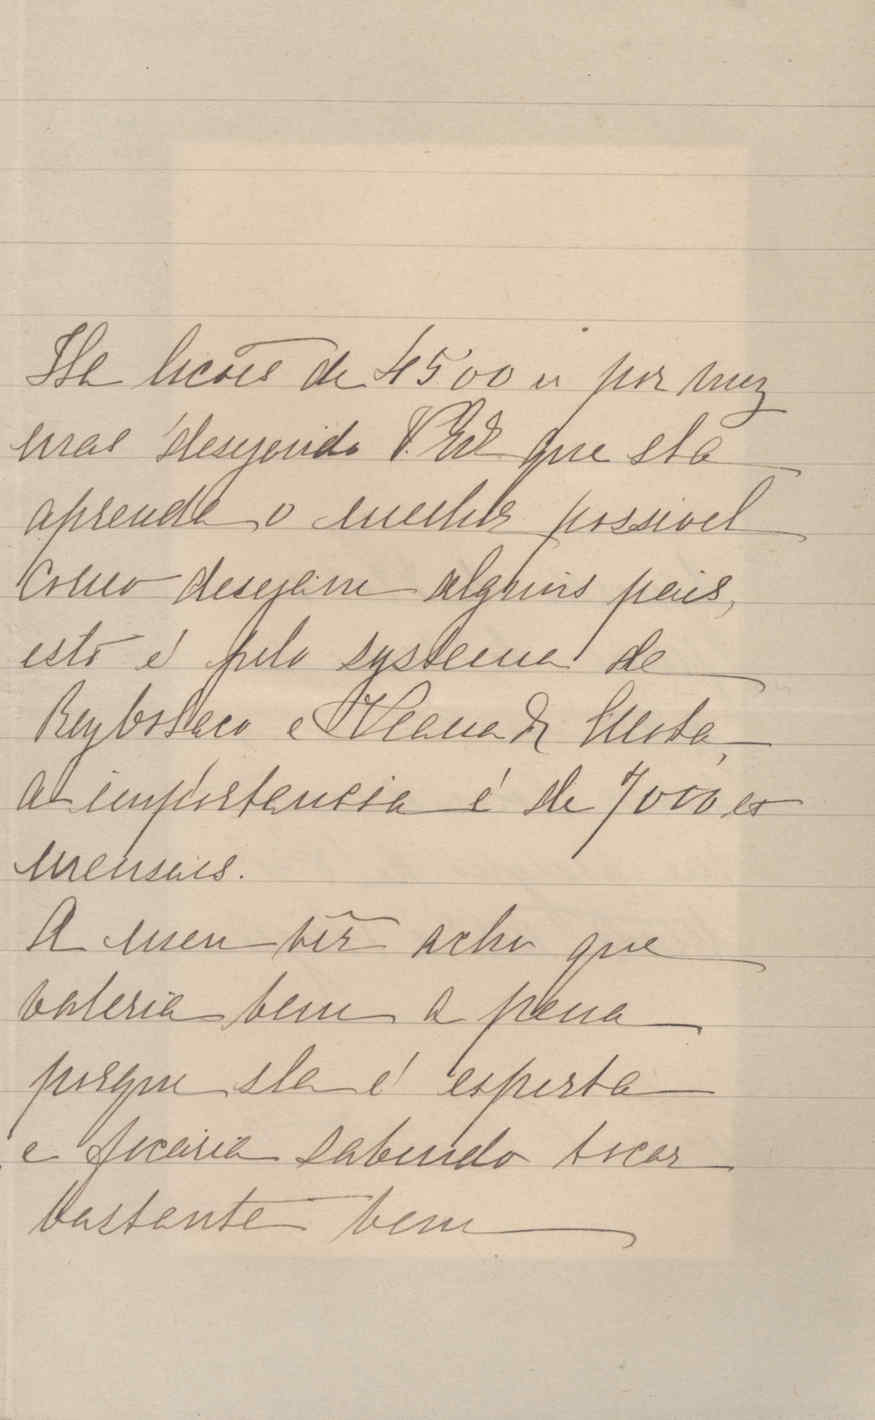 Ha licões de 4500 rs por mez
mas desejando V. Exª que ela
aprenda o melhor possivel
como desejam alguns pais,
isto é pelo systema de
e Vianna da Motta,
a importancia é de 7000 rs
mensais.
A meu vêr acho que
valeria bem a pena
porque ela é esperta
e ficaria sabendo tocar
bastante bem